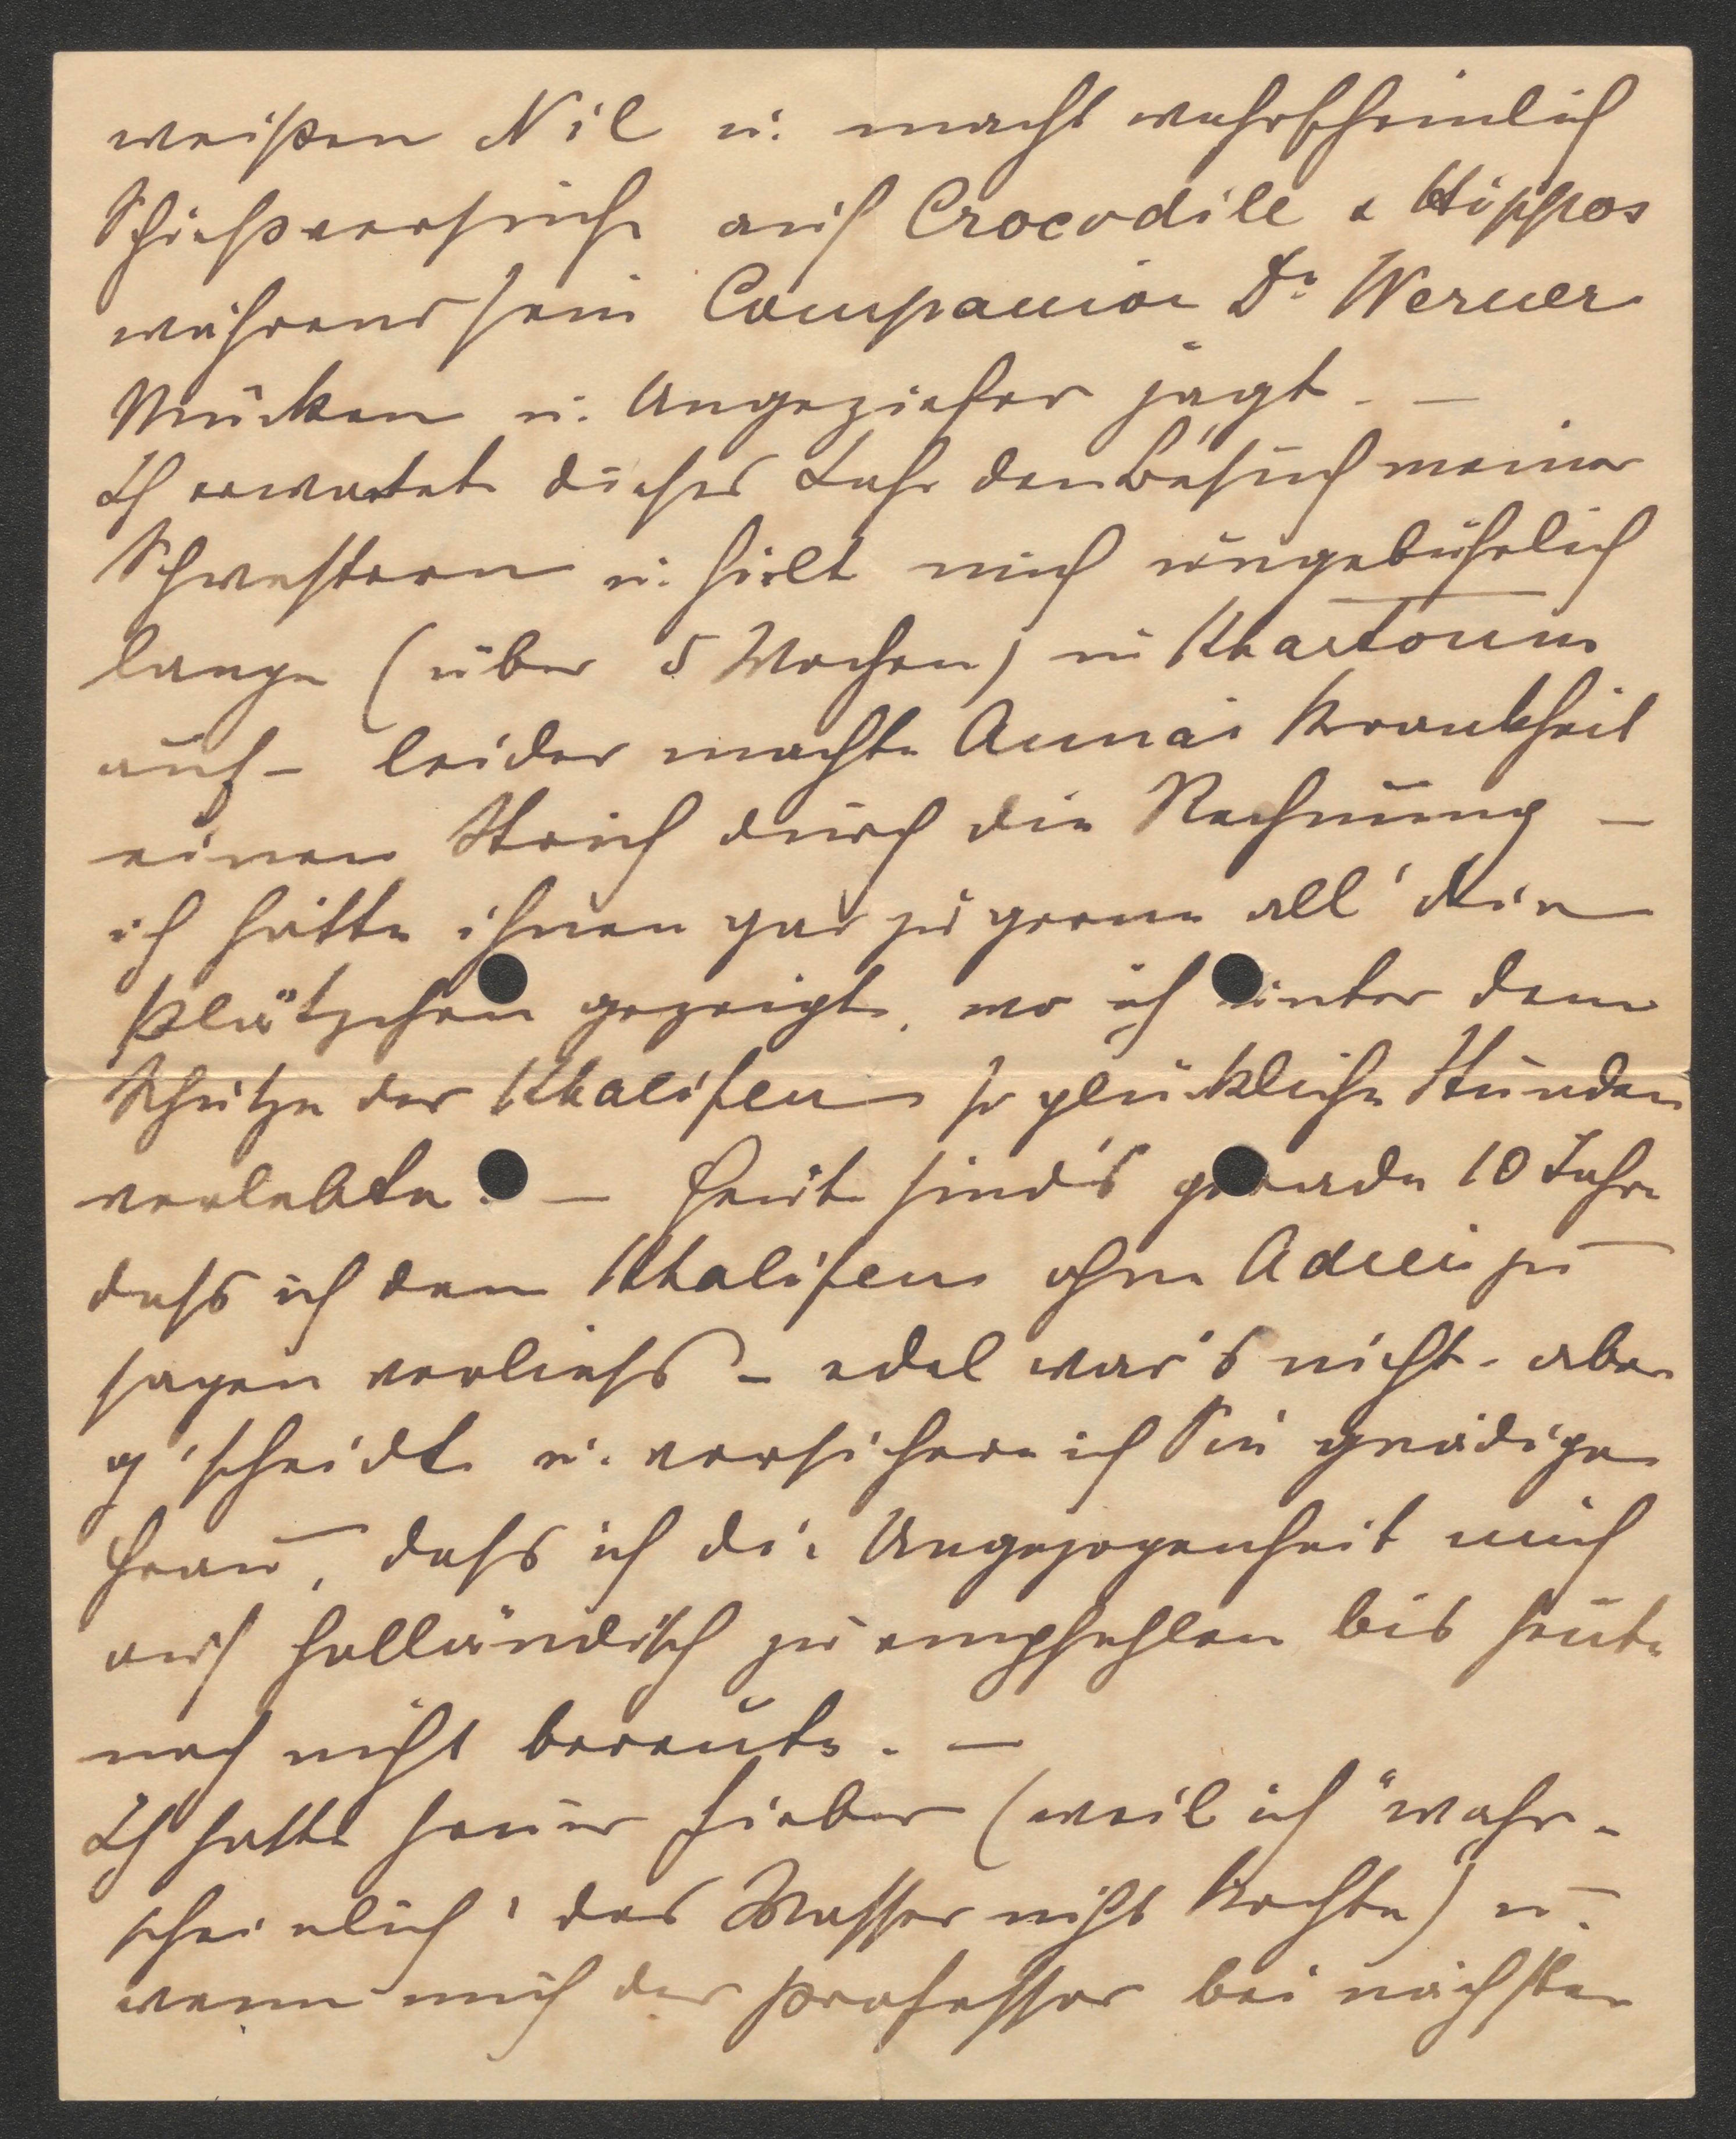 weißen Nil u. macht wahrscheinlich
Schießversuche auf Crocodile & Hippos
während sein Companion Dr Werner
Mücken u. Ungeziefer jagt. —
Ich erwartete dieses Jahr den Besuch meiner
Schwestern u. hielt mich ungebührlich
lange (über 5 Wochen) in Khartoum
auf – leider machte Anna's Krankheit
einen Strich durch die Rechnung —
ich hätte ihnen gar zu gerne all' die
Plätzchen gezeigt, wo ich unter dem
Schutze des Khalifen so glückliche Stunden
verlebte. — Heute sind's gerade 10 Jahre
dass ich den Khalifen ohne Adieu zu
sagen verliess – edel war's nicht – aber
g'scheidt u. versichere ich Sie gnädige
Frau, dass ich die Ungezogenheit mich
auf holländisch zu empfehlen bis heute
noch nicht bereute. —
Ich hatte heuer Fieber (weil ich "wahr-
scheinlich" das Wasser nicht kochte) u.
wenn mich der Professor bei nächster